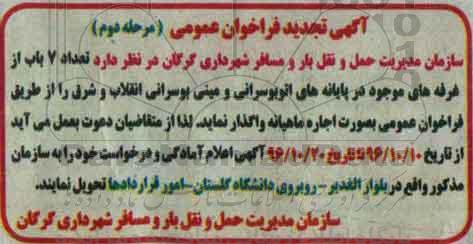 آگهی تجدید فراخوان عمومی (مرحله دوم)
سازمان مدیریت حمل و نقل بار و مسافر شهرداری گرگان در نظر دارد تعداد ۷ باب از
غرفه های موجود در پایانه های اتوبوسرانی و مینی بوسرانی انقلاب و شرق را از طریق
فراخوان عمومی بصورت اجاره ماهیانه واگذار نماید. لذا از متقاضیان دعوت بعمل می آید
از تاریخ ۹۶/۱۰/۱۰ تا تاریخ ۹۶/۱۰/۲۰ آگهی اعلام آمادگی و درخواست خود را به سازمان
مذکور واقع در بلوار الغدیر - روبروی دانشگاه گلستان - امور قراردادها تحویل نمایند.
سازمان مدیریت حمل و نقل بار و مسافر شهرداری گرگان